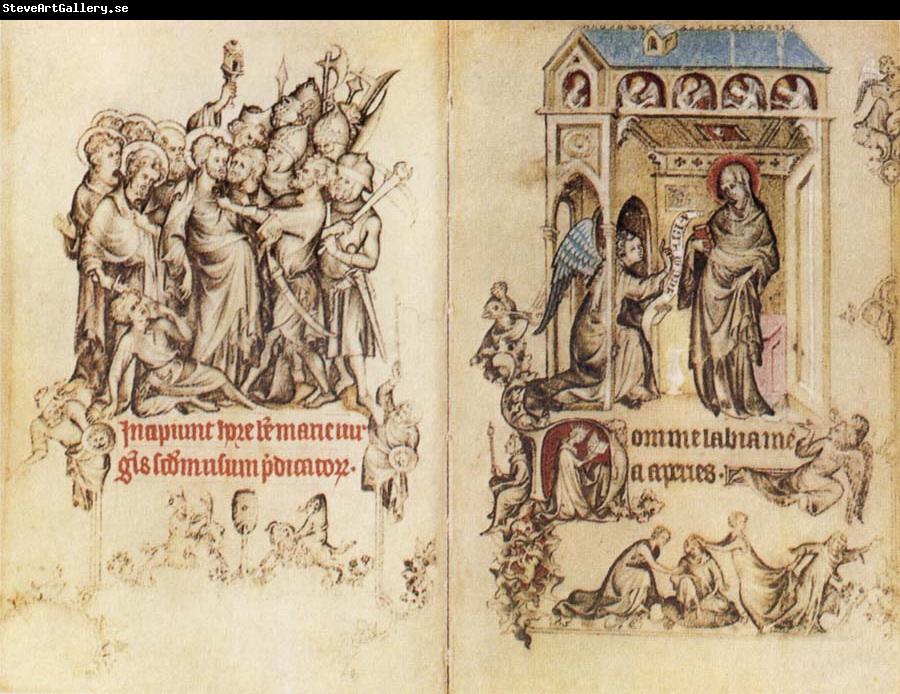 SteveArtGallery.se
Incipiunt hore bẽ marie uir
gĩs scðm usum p̃dicatoꝝ.
Domine labia me
a aperies.